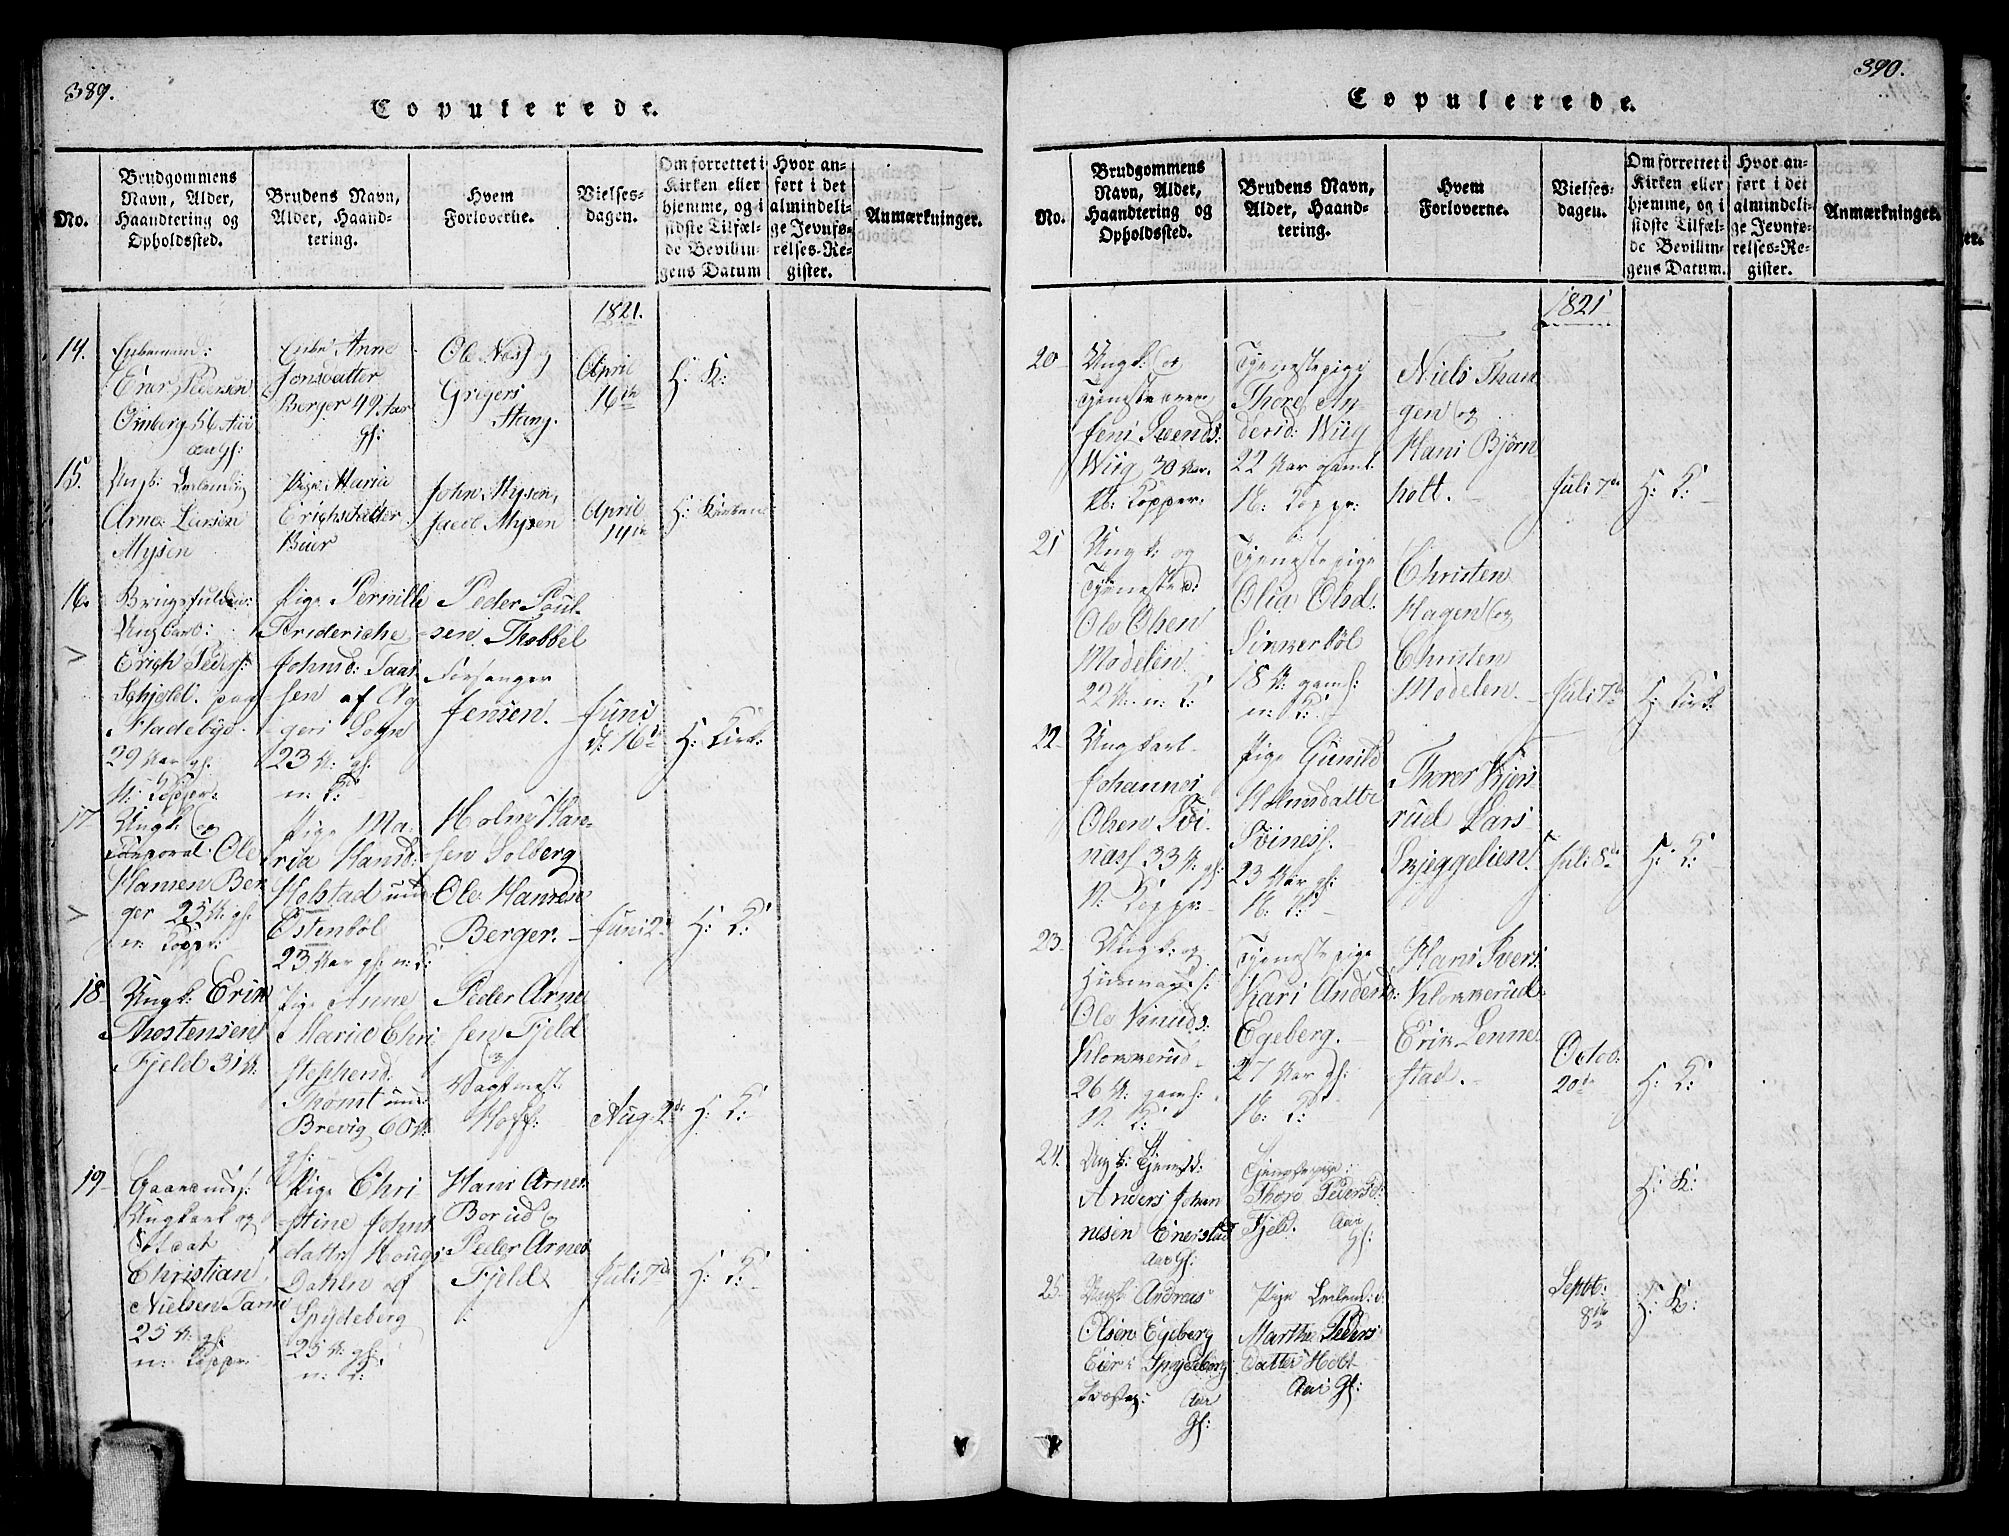 389.
Copulerede.
No.
Brudgommens
Navn, Alder,
Haandtering og
Opholdssted.
Brudens Navn,
Alder, Haand-
tering.
Hvem
Forloverne.
Vielses-
dagen.
Om forrettet i
Kirken eller
hjemme, og i
sidste Tilfæl-
de Bevillin-
gens Datum
Hvor an-
ført i det
almindeli-
ge Jevnfø-
relses-Re-
gister.
Anmærkninger.
1821.
14.
Enkemand:
Ener Pedersen
Ørnberg 56 Aar
Gl:
Enke Anne
Jonsdatter
Berger 49 Aar
gl:
Ole Næs og
Gregers
Stang.
April
16de
H: K:
15.
Ungk:
Arne Larsen
Mysen
Pige Maria
Erichsdatter
Beier
John Mysen,
Jacob Mysen
April
14de
H: Kirken
16.
Ungkarl:
Erich Peders:
Schjold. paa
Fladebye.
29 Aar gl.
N: Copper:
Pige Pernille
Frideriche
Johnsd: Taas
-sen af Ag
-geri Sogn
23 A: gl.
n: K:
Peder Poul-
-sen Thobbel
Forsanger
Jensen.
Juni
d: 16de
H: Kirk:
17
Ungk: og
Corporal: Ole
Hansen Ber
ger 25 A: gl.
n: Copp:
Pige Ma-
ria Hansd:
Holstad
Østenböl
23 Aar gl. n: K:
Holm Han-
-sen Solberg
Ole Hansen
Berger.
Juni 2de
H: K:
18
Ungk: Erik
Thostensen
Fjeld 31 A:
Pige Anne
Marie Chri
stephersd:
Thomt
Brevig 60 A:
gl:
Peder Arne
sen Fjeld
og
Hoff:
Aug: 2de
H: K:
19
Gaardmds:
Ungkarl og
Soldat
Christian
Nielsen Tarn
25 A: gl:
n: Copper:
Pige Chri
-stine Johns
datter Hougs
Dahlen af
Spydeberg
25 A: gl:
n: K:
Hans Arnes
Borud og
Peder Arnes
Fjeld
Juli 7de
H: K:
390.
Copulerede.
No.
Brudgommens
Navn, Alder,
Haandtering og
Opholdssted.
Brudens Navn,
Alder, Haand-
tering.
Hvem
Forloverne.
Vielses-
dagen.
Om forrettet i
Kirken eller
hjemme, og i
sidste Tilfæl-
de Bevillin-
gens Datum.
Hvor an-
ført i det
almindeli-
ge Jevnfø-
relses-Re-
gister.
Anmærkninger.
1821
20
Ungk: og
Jens Svends:
Wiig 30 Aar.
N: Copper:
Tjenestepige
Thore An-
dersd: Wiig
22 Aar gaml.
N: Copp:
Niels Than
gen og
Hans Bjørn
holt.
Juli 7de
H: K:
21
Ungk: og
Tjenested:
Ole Olsen
Modelen
22 A: n: K:
Tjenestepige
Olia Olsd:
Sikkerböl
18 A: gaml:
n: K:
Christen
Hagen og
Christen
Modelen
Juli 7de
H: Kirk:
22
Ungkarl
Johannes
Olsen Svi-
næss 33 A: gl:
N: Copp:
Pige Gunild
Holmsdatter
Svines.
23 Aar gl:
N: K:
Thorer Kjers
rud Lars
Skjeggelien
Juli 8de
H: K:
23
Ungk: og
Husmands:
Ole Knuds:
Klokkerud
26 A: gaml:
N: K:
Tjenestepige
Kari Andersd:
Egeberg.
27 Aar gl:
N: K:
Hans Ivers
Klokkerud
Erik Lenne
stad.
Octob:
20de
H: K:
24.
Ungk: Tjenestk:
Anders Johan
nesen Enerstad
Aar Gl:
Tjenestepige:
Thore Pedersd:
Fjeld. Aar
Gl:
H: K:
25.
Ungk: Andreas
Olsen Egeberg
Eier i Spydeberg
Aar
Gl:
Pige
Marthe Peders
datter Holt
Aar Gl:
Septb:
8de
H: K: